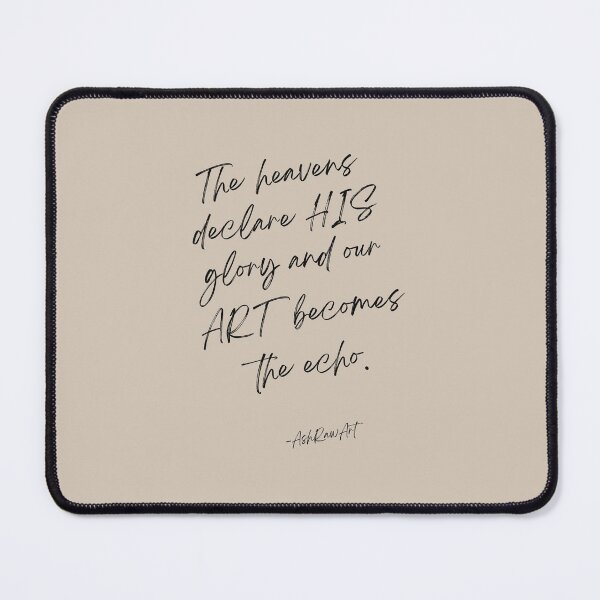 The heavens
declare HIS
glory and our
ART becomes
the echo.
-AshRawArt